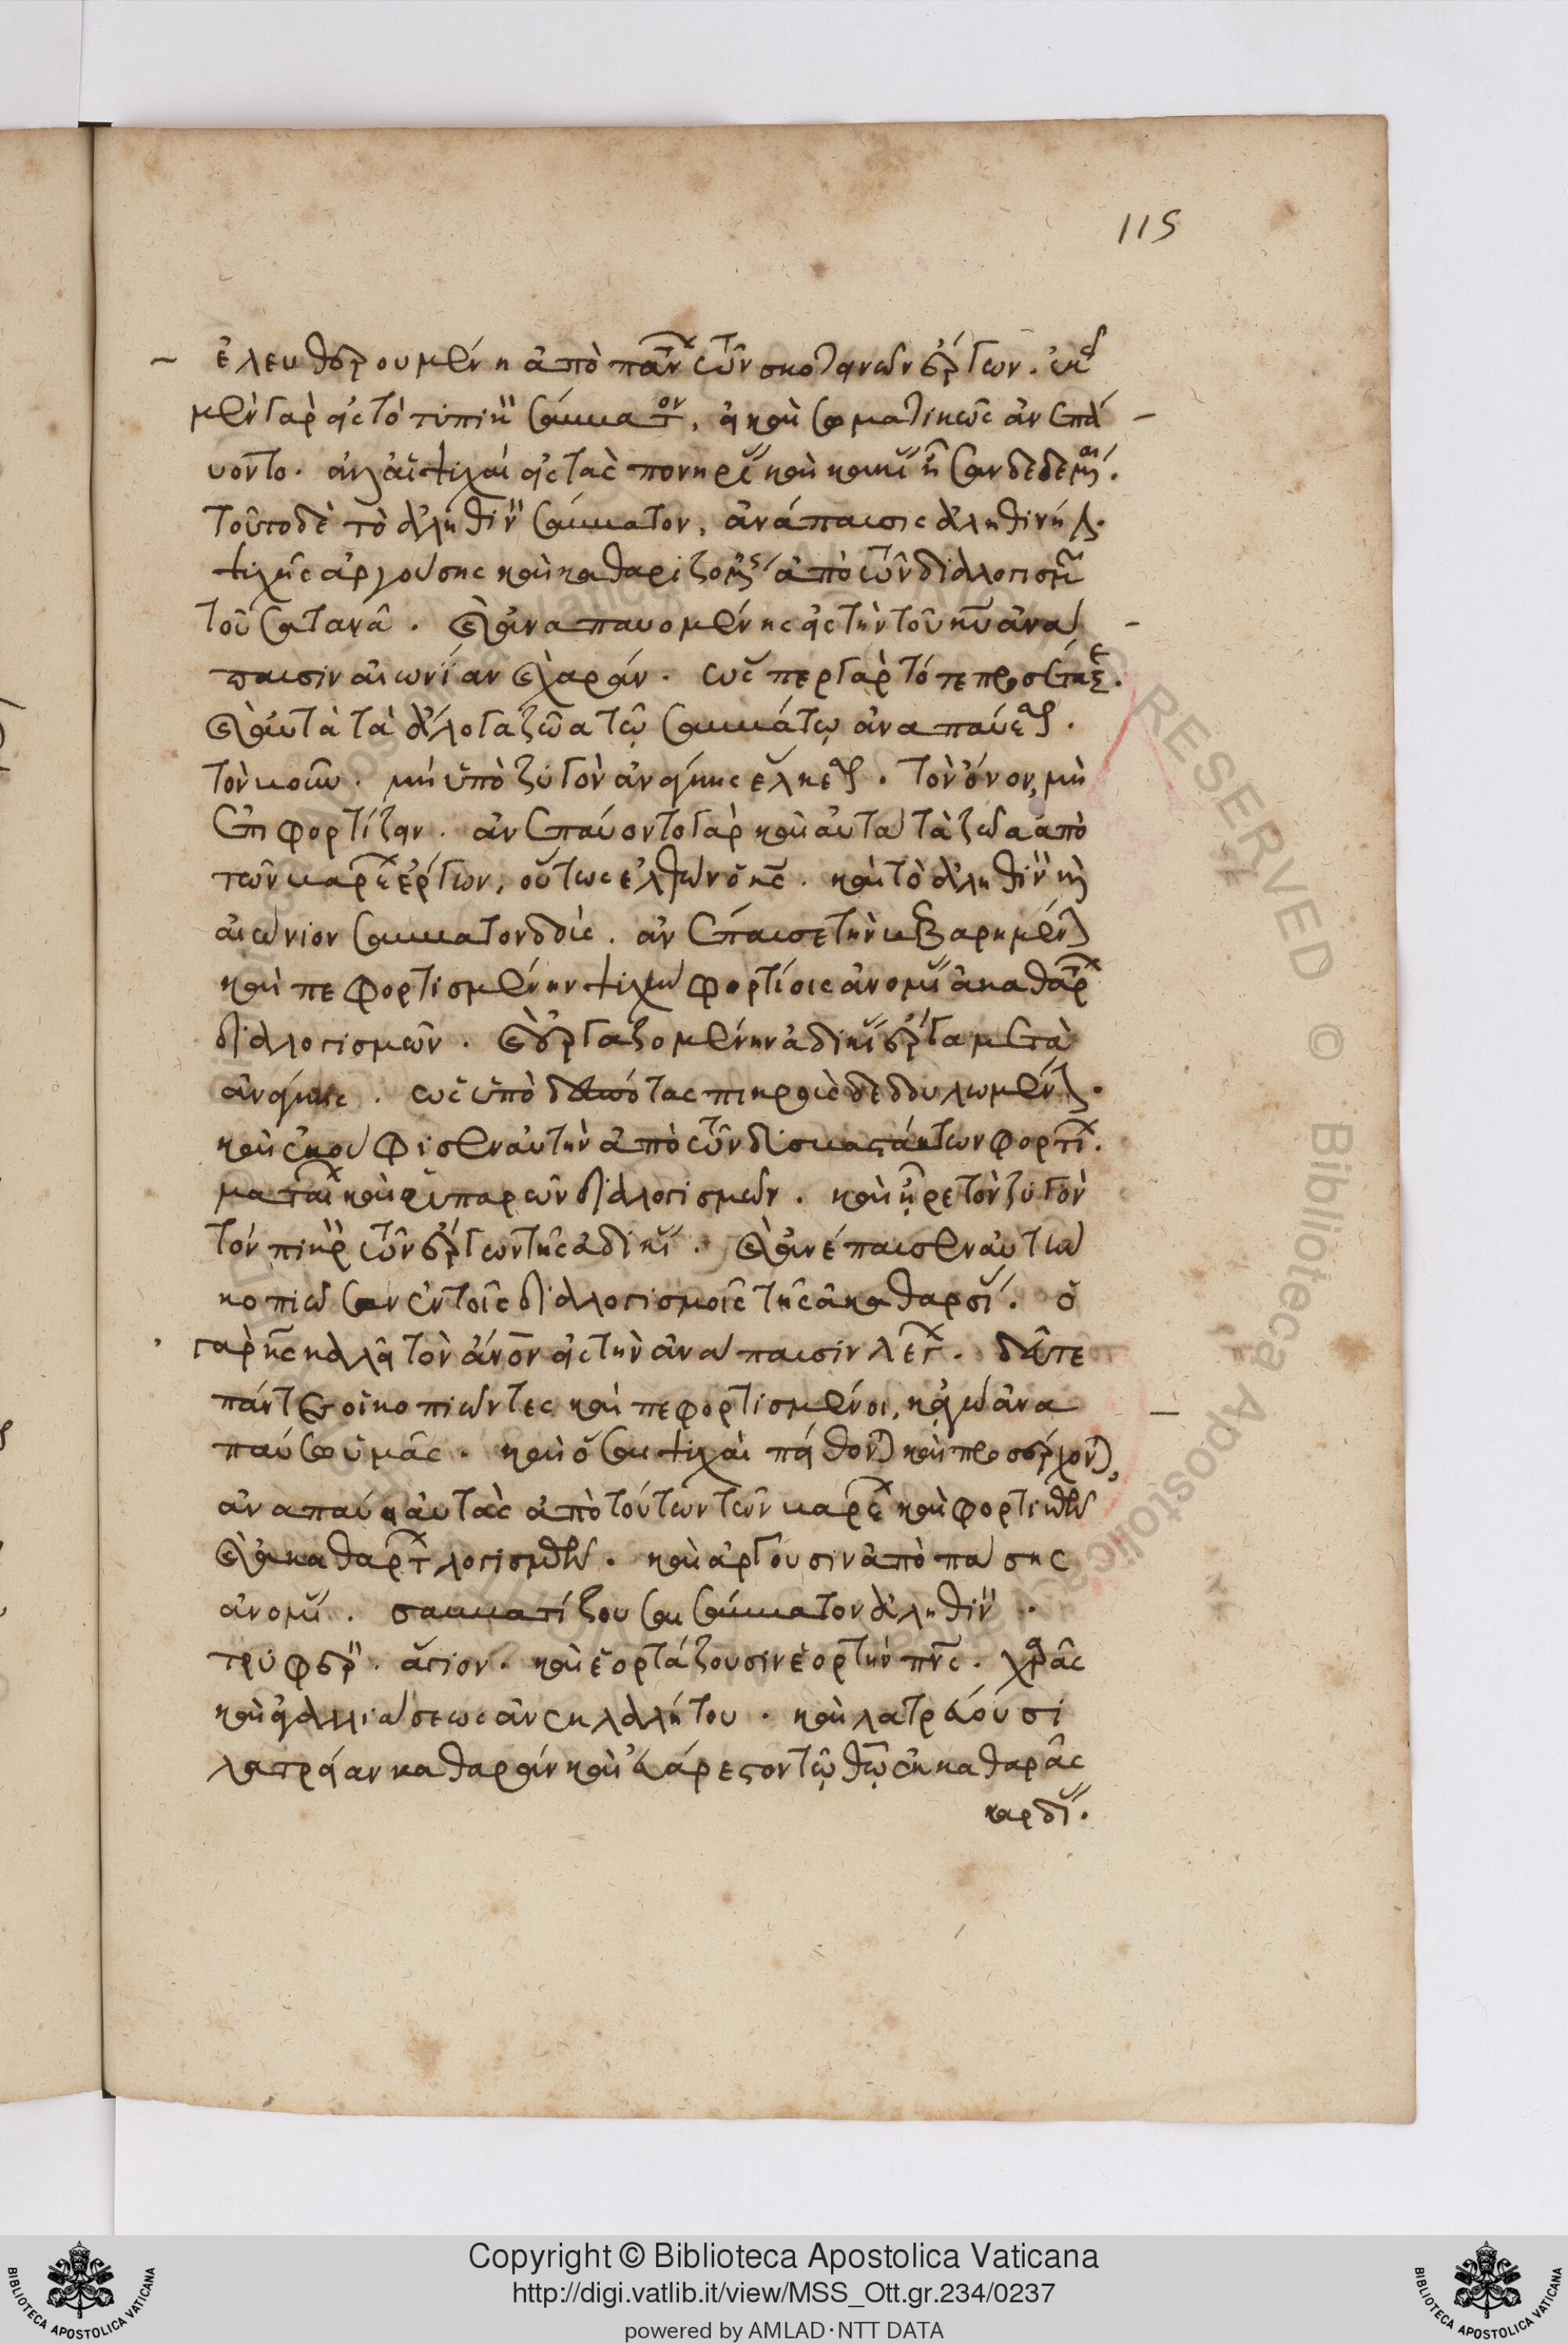 115
ἐλευθερουμένη ἀπὸ πάντ τῶν σκοτεινῶν ἔργων. ἐκεῖ
μὲν γὰρ εἰς τὸ τυπικὸν σάββατον, εἰ καὶ σωματικῶς ἀνεπά
υοντο. ἀλλ' αἱ ψυχαὶ εἰς τὰς πονηρίας καὶ κακίας ἦσαν δεδεμέναι.
τοῦτο δὲ τὸ ἀληθινὸν σάββατον, ἀνάπαυσις ἀληθινή ἐστι.
ψυχῆς ἀργούσης καὶ καθαριζομένης ἀπὸ τῶν διαλογισμῶν
τοῦ σατανᾶ. καὶ ἀναπαυομένης εἰς τὴν τοῦ κυ ἀνά
παυσιν αἰωνίαν καὶ χαράν. ὥσπερ γὰρ τότε προσέταξε.
καὶ αὐτὰ τὰ ἄλογα ζῶα τῷ σαββάτῳ ἀναπαύεσθαι.
τὸν βοῦν. μὴ ὑπὸ ζυγὸν ἀνάγκης ἕλκεσθαι. τὸν ὄνον, μὴ
ἐπιφορτίζειν. ἀνεπαύοντο γὰρ καὶ αὐτὰ τὰ ζῶα ἀπὸ
τῶν βαρέων ἔργων, οὕτως ἐλθὼν ὁ κς. καὶ τὸ ἀληθινὸν καὶ
αἰώνιον σάββατον δούς. ἀνέπαυσε τὴν βεβαρημένην
καὶ πεφορτισμένην ψυχὴν φορτίοις ἀνομίας ἀκαθάρτων
διαλογισμῶν. καὶ ἐργαζομένην ἀδικίας ἔργα μετὰ
ἀνάγκης. ὡς ὑπὸ δεσπότας πικροὺς δεδουλωμένην.
καὶ ἐκούφισεν αὐτὴν ἀπὸ τῶν δυσβαστάκτων φορτίων.
ματαίων καὶ ῥυπαρῶν διαλογισμῶν. καὶ ἦρε τὸν ζυγὸν
τὸν πικρὸν τῶν ἔργων τῆς ἀδικίας. καὶ ἀνέπαυσεν αὐτὴν
κοπιῶσαν ἐν τοῖς διαλογισμοῖς τῆς ἀκαθαρσίας. ὁ
γὰρ κς καλεῖ τὸν ἄνον εἰς τὴν ἀνάπαυσιν λέγων. δεῦτε
πάντες οἱ κοπιῶντες καὶ πεφορτισμένοι, κἀγὼ ἀνα
παύσω ὑμᾶς. καὶ ὅσαι ψυχαὶ πείθονται καὶ προσέρχονται,
ἀναπαύει αὐτὰς ἀπὸ τούτων τῶν βαρέων καὶ φορτικῶν
καὶ ἀκαθάρτ λογισμῶν. καὶ ἀργοῦσιν ἀπὸ πάσης
ἀνομίας. σαββατίζουσαι σάββατον ἀληθινὸν.
τρυφερὸν. ἅγιον. καὶ ἑορτάζουσιν ἑορτὴν πνς. χαρᾶς
καὶ ἀγαλλιάσεως ἀνεκλαλήτου. καὶ λατρεύουσι
λατρείαν καθαρὰν καὶ εὐάρεστον τῷ θῷ ἐκ καθαρᾶς
καρδίας.
Copyright © Biblioteca Apostolica Vaticana
http://digi.vatlib.it/view/MSS_Ott.gr.234/0237
powered by AMLAD·NTT DATA